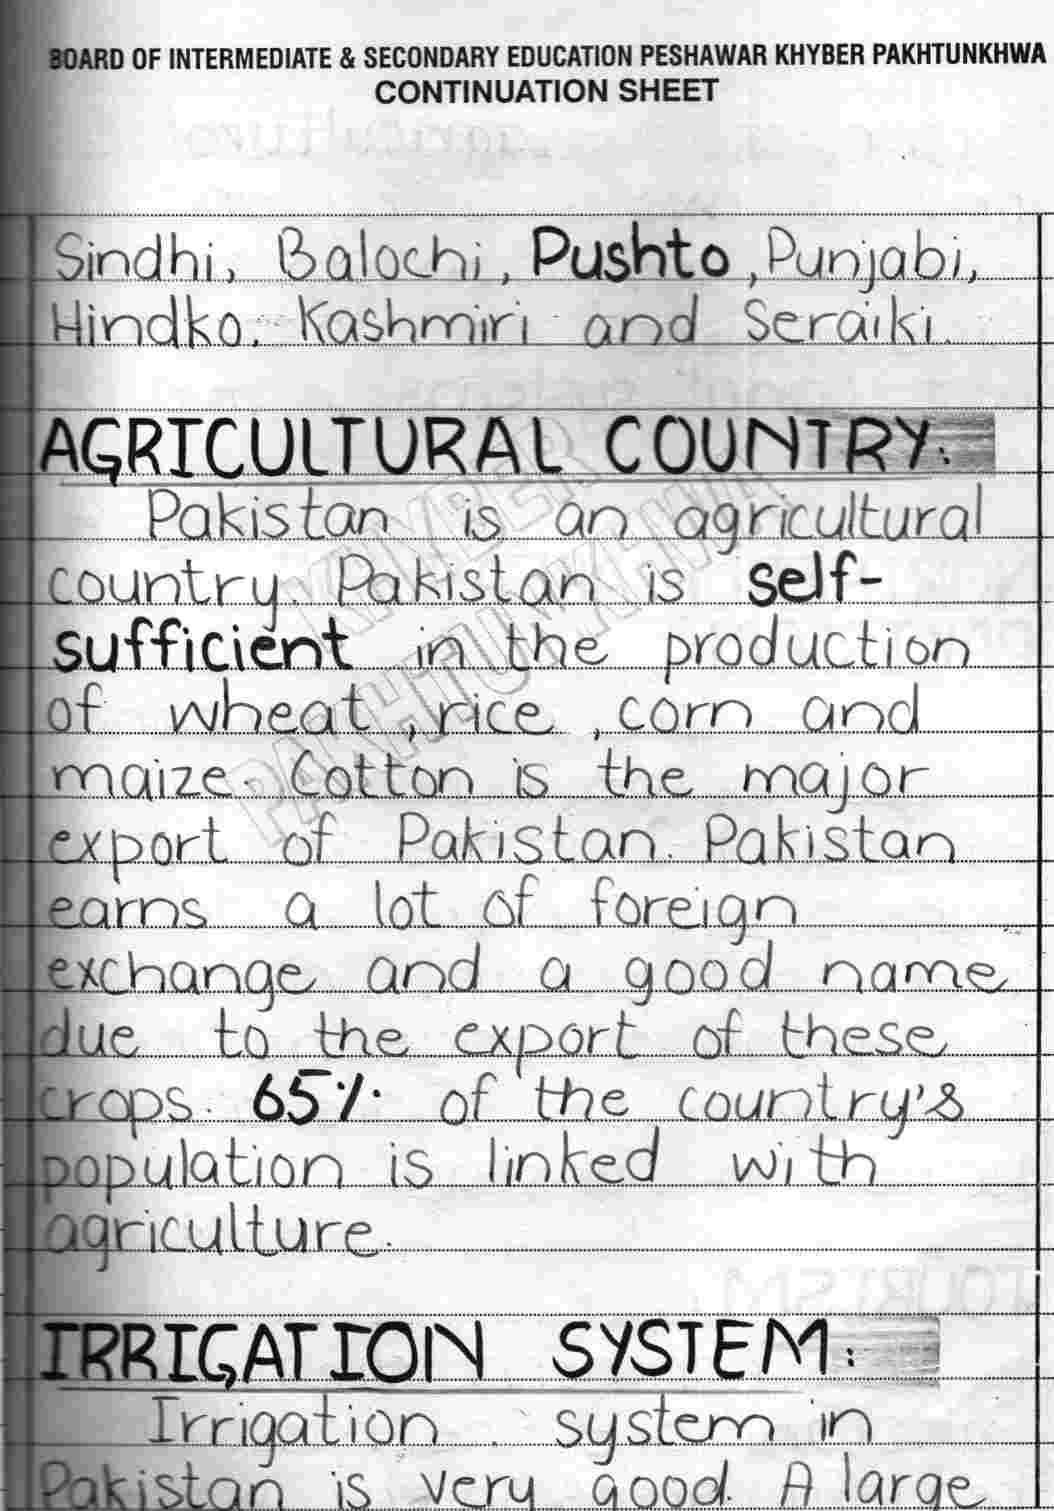 BOARD OF INTERMEDIATE & SECONDARY EDUCATION PESHAWAR KHYBER PAKHTUNKHWA
CONTINUATION SHEET
Sindhi, Balochi, Pushto, Punjabi,
Hindko, Kashmiri and Seraiki.
AGRICULTURAL COUNTRY:
Pakistan is an agricultural
country. Pakistan is self-
sufficient in the production
of wheat, rice, corn and
maize. Cotton is the major
export of Pakistan. Pakistan
earns a lot of foreign
exchange and a good name
due to the export of these
crops. 65% of the country's
population is linked with
agriculture.
IRRIGATION SYSTEM:
Irrigation system in
Pakistan is very good. A large
KHYBER
PAKHTUNKHWA